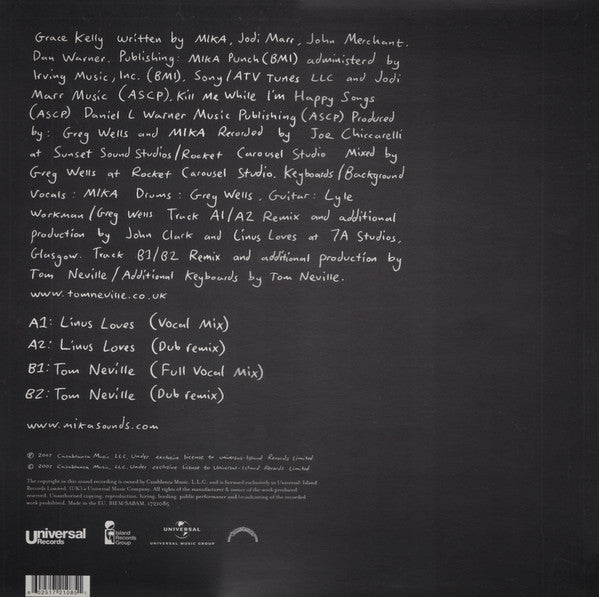 Grace Kelly written by MIKA, Jodi Marr, John Merchant.
Dan Warner. Publishing: MIKA Punch (BMI) administerd by
Irving Music, Inc. (BMI), Sony/ATV Tunes LLC and Jodi
Marr Music (ASCP), Kill Me While I'm Happy Songs
(ASCP) Daniel L Warner Music Publishing (ASCP) Produced
by: Greg Wells and MIKA Recorded by Joe Chiccarelli
at Sunset Sound Studios/Rocket Carousel Studio Mixed by
Greg Wells at Rocket Carousel Studio. Keyboards/Background
Vocals: MIKA Drums: Greg Wells, Guitar: Lyle
Workman/Greg Wells Track A1/A2 Remix and additional
production by John Clark and Linus Loves at 7A Studios,
Glasgow. Track B1/B2 Remix and additional production by
Tom Neville/Additional Keyboards by Tom Neville.
www.tomneville.co.uk
A1: Linus Loves (Vocal Mix)
A2: Linus Loves (Dub remix)
B1: Tom Neville (Full Vocal Mix)
B2: Tom Neville (Dub remix)
www.mikasounds.com
℗ 2007 Casablanca Music, LLC. Under exclusive license to Universal-Island Records Limited.
© 2007 Casablanca Music, LLC. Under exclusive license to Universal-Island Records Limited
The copyright in this sound recording is owned by Casablanca Music, L.L.C. and is licensed exclusively to Universal Island
Records Ltd. (UK) a Universal Music Company. All rights of the manufacturer & owner of the work produced
reserved. Unauthorised copying, reproduction, hiring, lending, public performance and broadcasting of the recorded
work prohibited. Made in the EU. BIEM/SABAM. 1721085
Universal
Records
Island
Records
Group
UNIVERSAL
UNIVERSAL MUSIC GROUP
6 02517 21085